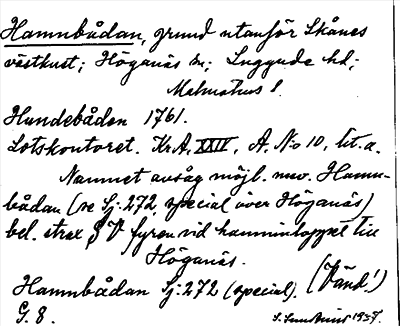 Hamnbådan, grund utanför Skånes
västkust; Höganäs sn; Luggude hd;
Malmöhus l.
Hundebåden 1761.
Lotskontoret. Kr.A. XXIV, A. No 10, lit. a.
Namnet avsåg möjl. nuv. Hamn-
bådan (se Sj: 272, special över Höganäs)
bel. strax S V fyren vid hamninloppet till
Höganäs.
(Vänd!)
Hamnbådan Sj: 272 (special).
G. 8.